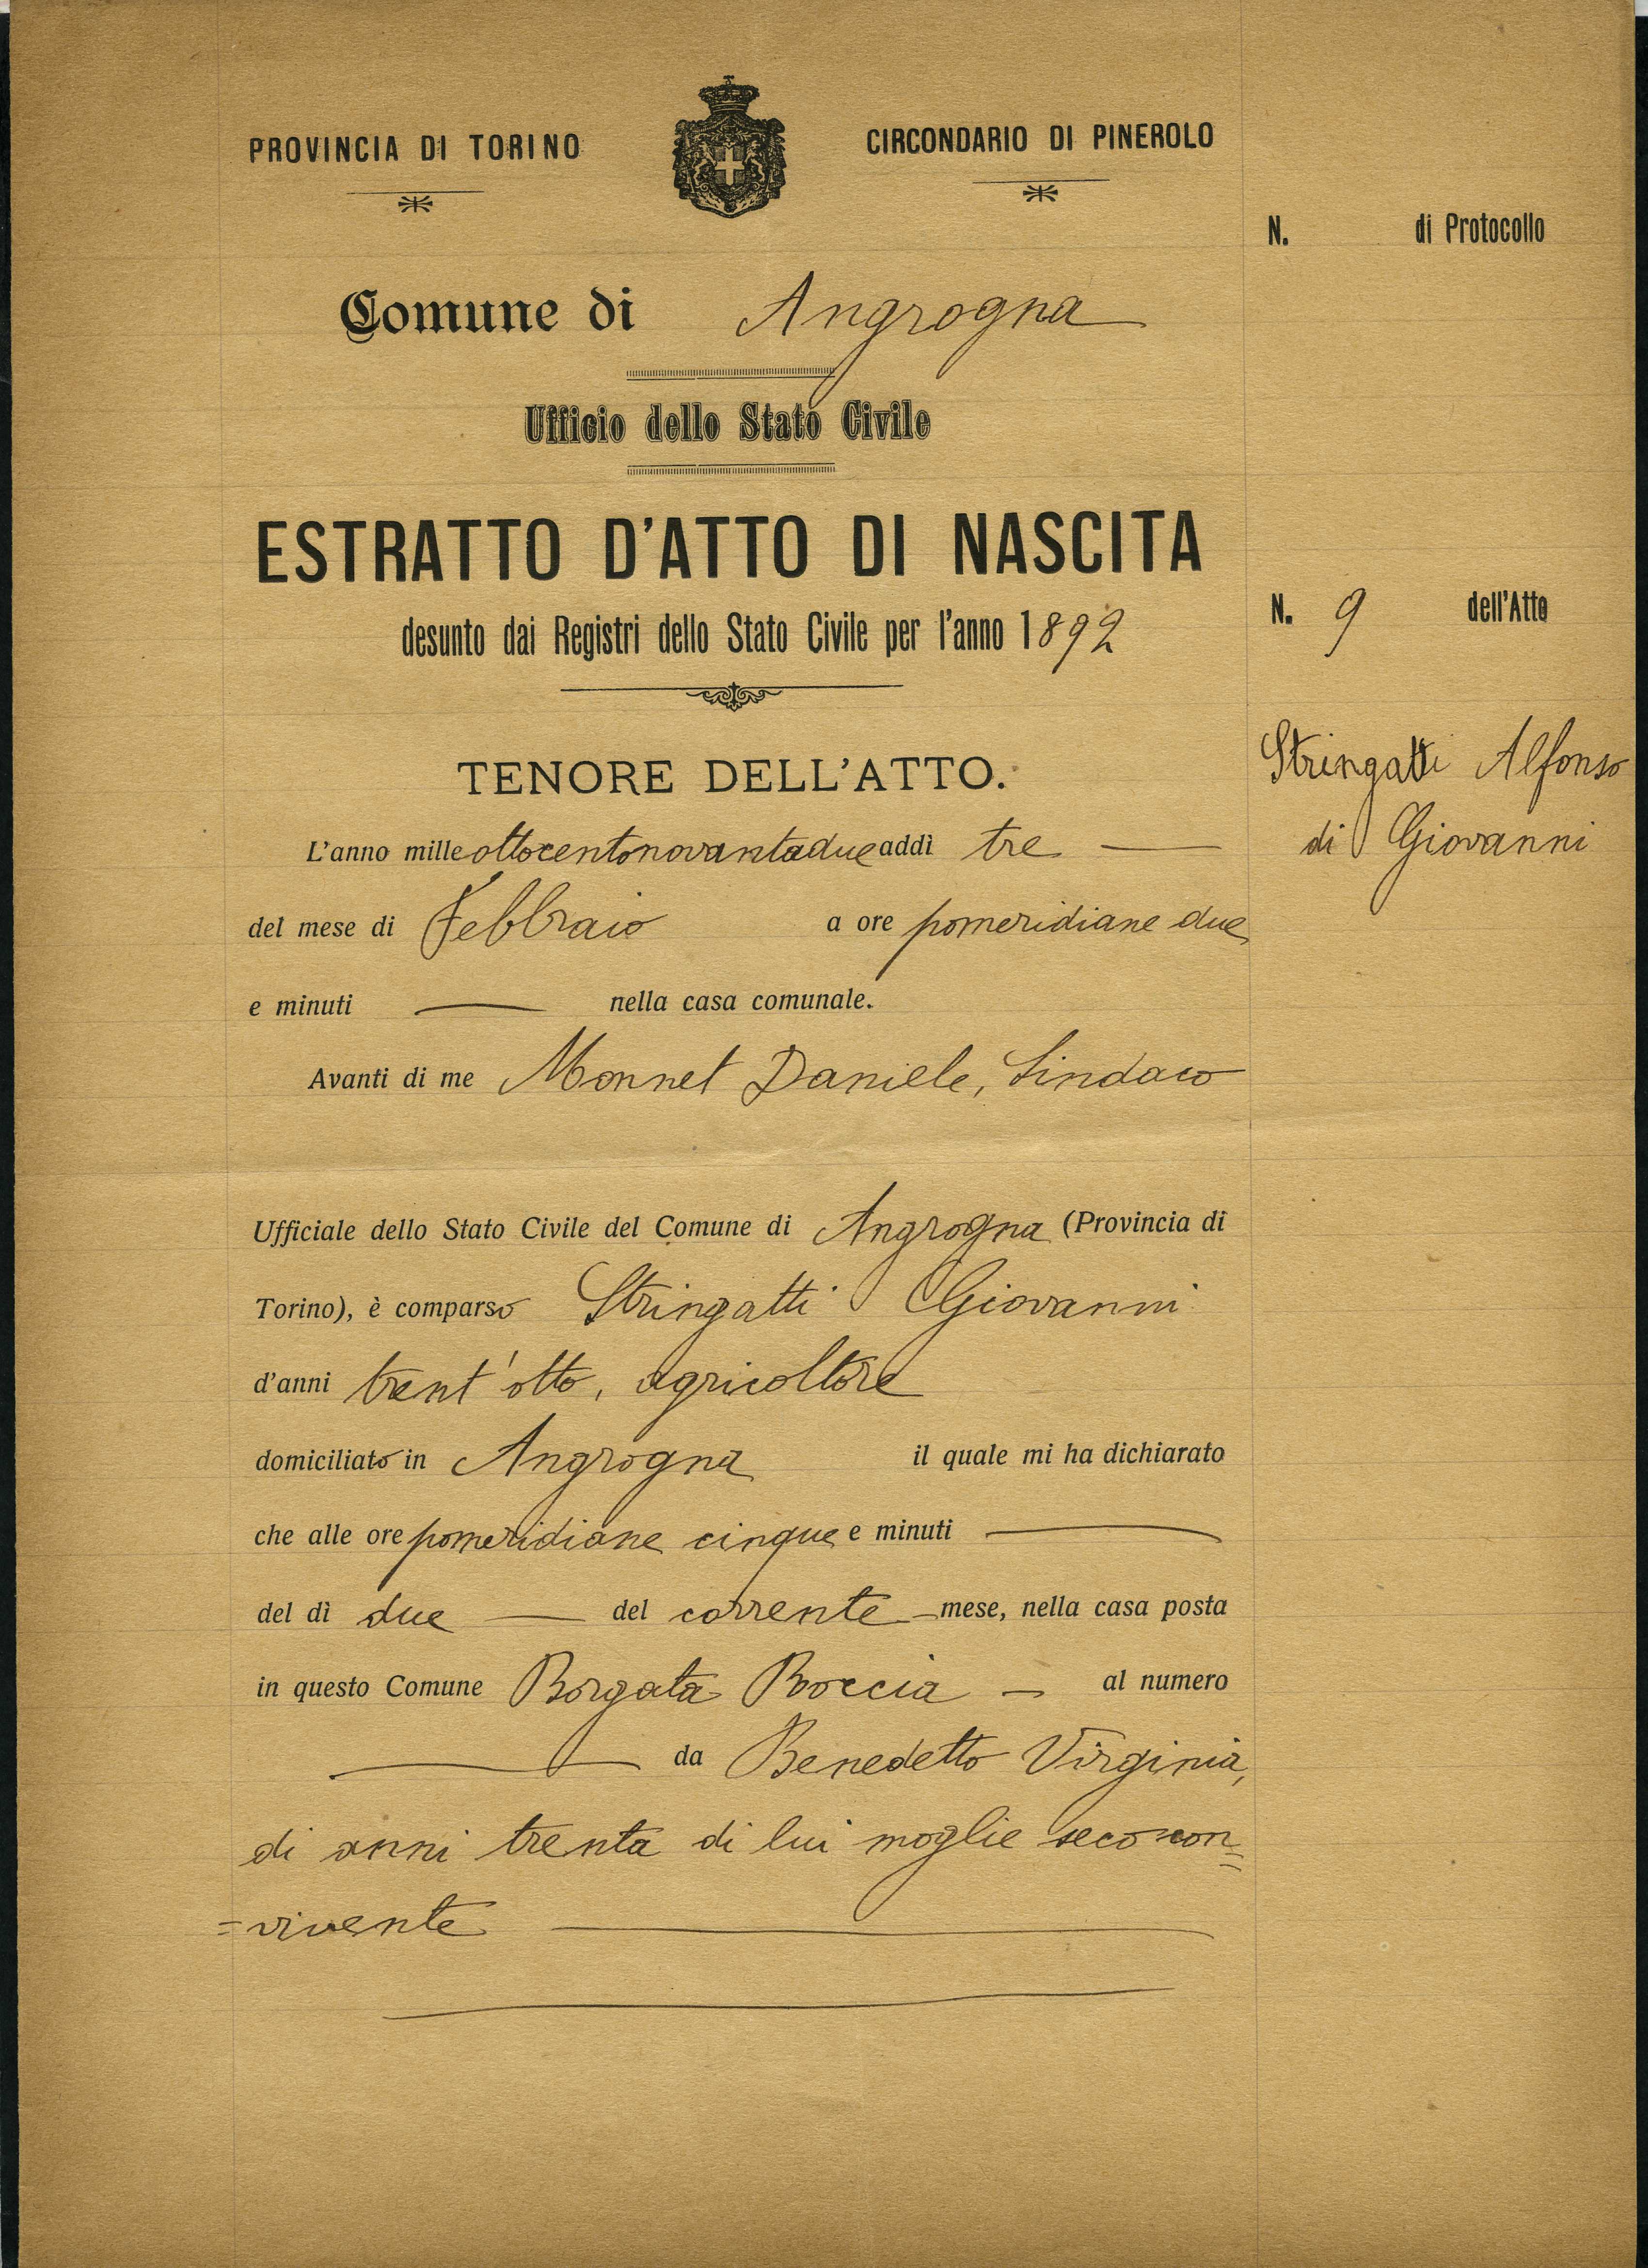 PROVINCIA DI TORINO
CIRCONDARIO DI PINEROLO
N. di Protocollo
Comune di Angrogna
Ufficio dello Stato Civile
ESTRATTO D'ATTO DI NASCITA
desunto dai Registri dello Stato Civile per l'anno 1892
N. 9 dell'Atto
Stringatti Alfonso
di Giovanni
TENORE DELL'ATTO.
L'anno milleottocentonovantadue addì tre
del mese di Febbraio a ore pomeridiane due
e minuti — nella casa comunale.
Avanti di me Monnet Daniele, Sindaco
Ufficiale dello Stato Civile del Comune di Angrogna (Provincia di
Torino), è comparso Stringatti Giovanni
d'anni trent'otto, agricoltore
domiciliato in Angrogna il quale mi ha dichiarato
che alle ore pomeridiane cinque e minuti —
del dì due — del corrente mese, nella casa posta
in questo Comune Borgata Boccia — al numero
— da Benedetto Virginia,
di anni trenta di lui moglie seco con=
=vivente —